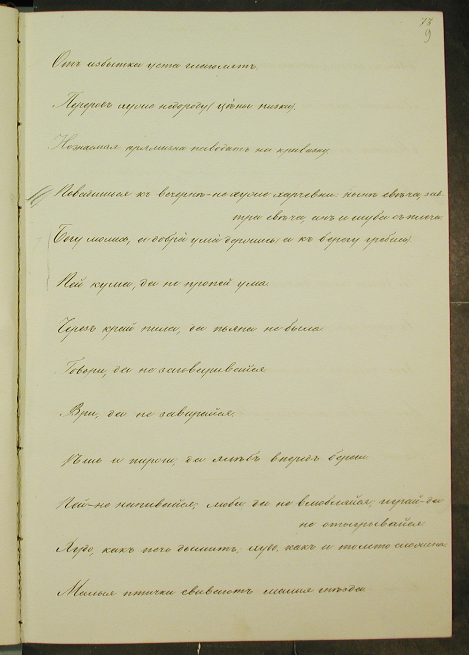 73
9
Отъ избытка уста глаголятъ.
дорого, (цѣны низки).
Незнаемая прямизна наводитъ на кривизну
Повадишься къ вечернѣ – не хуже харчевни: нонѣ свѣча, зав-
тра свѣча, анъ и шуба съ плеча.
Богу молись, а добра ума держись, а къ берегу гребись.
Пей кума, да не пропей ума.
Черезъ край пила, да пьяна не была
Говори, да не заговаривайся
Ври, да не завирайся.
Ѣшь и пироги, да хлѣбъ впередъ береги
Пей – не напивайся; люби да не влюбляйся; играй – да
не отыгрывайся.
Худо, какъ печь дымитъ, худо, какъ и
Малыя птички свиваютъ малыя гнѣзда.